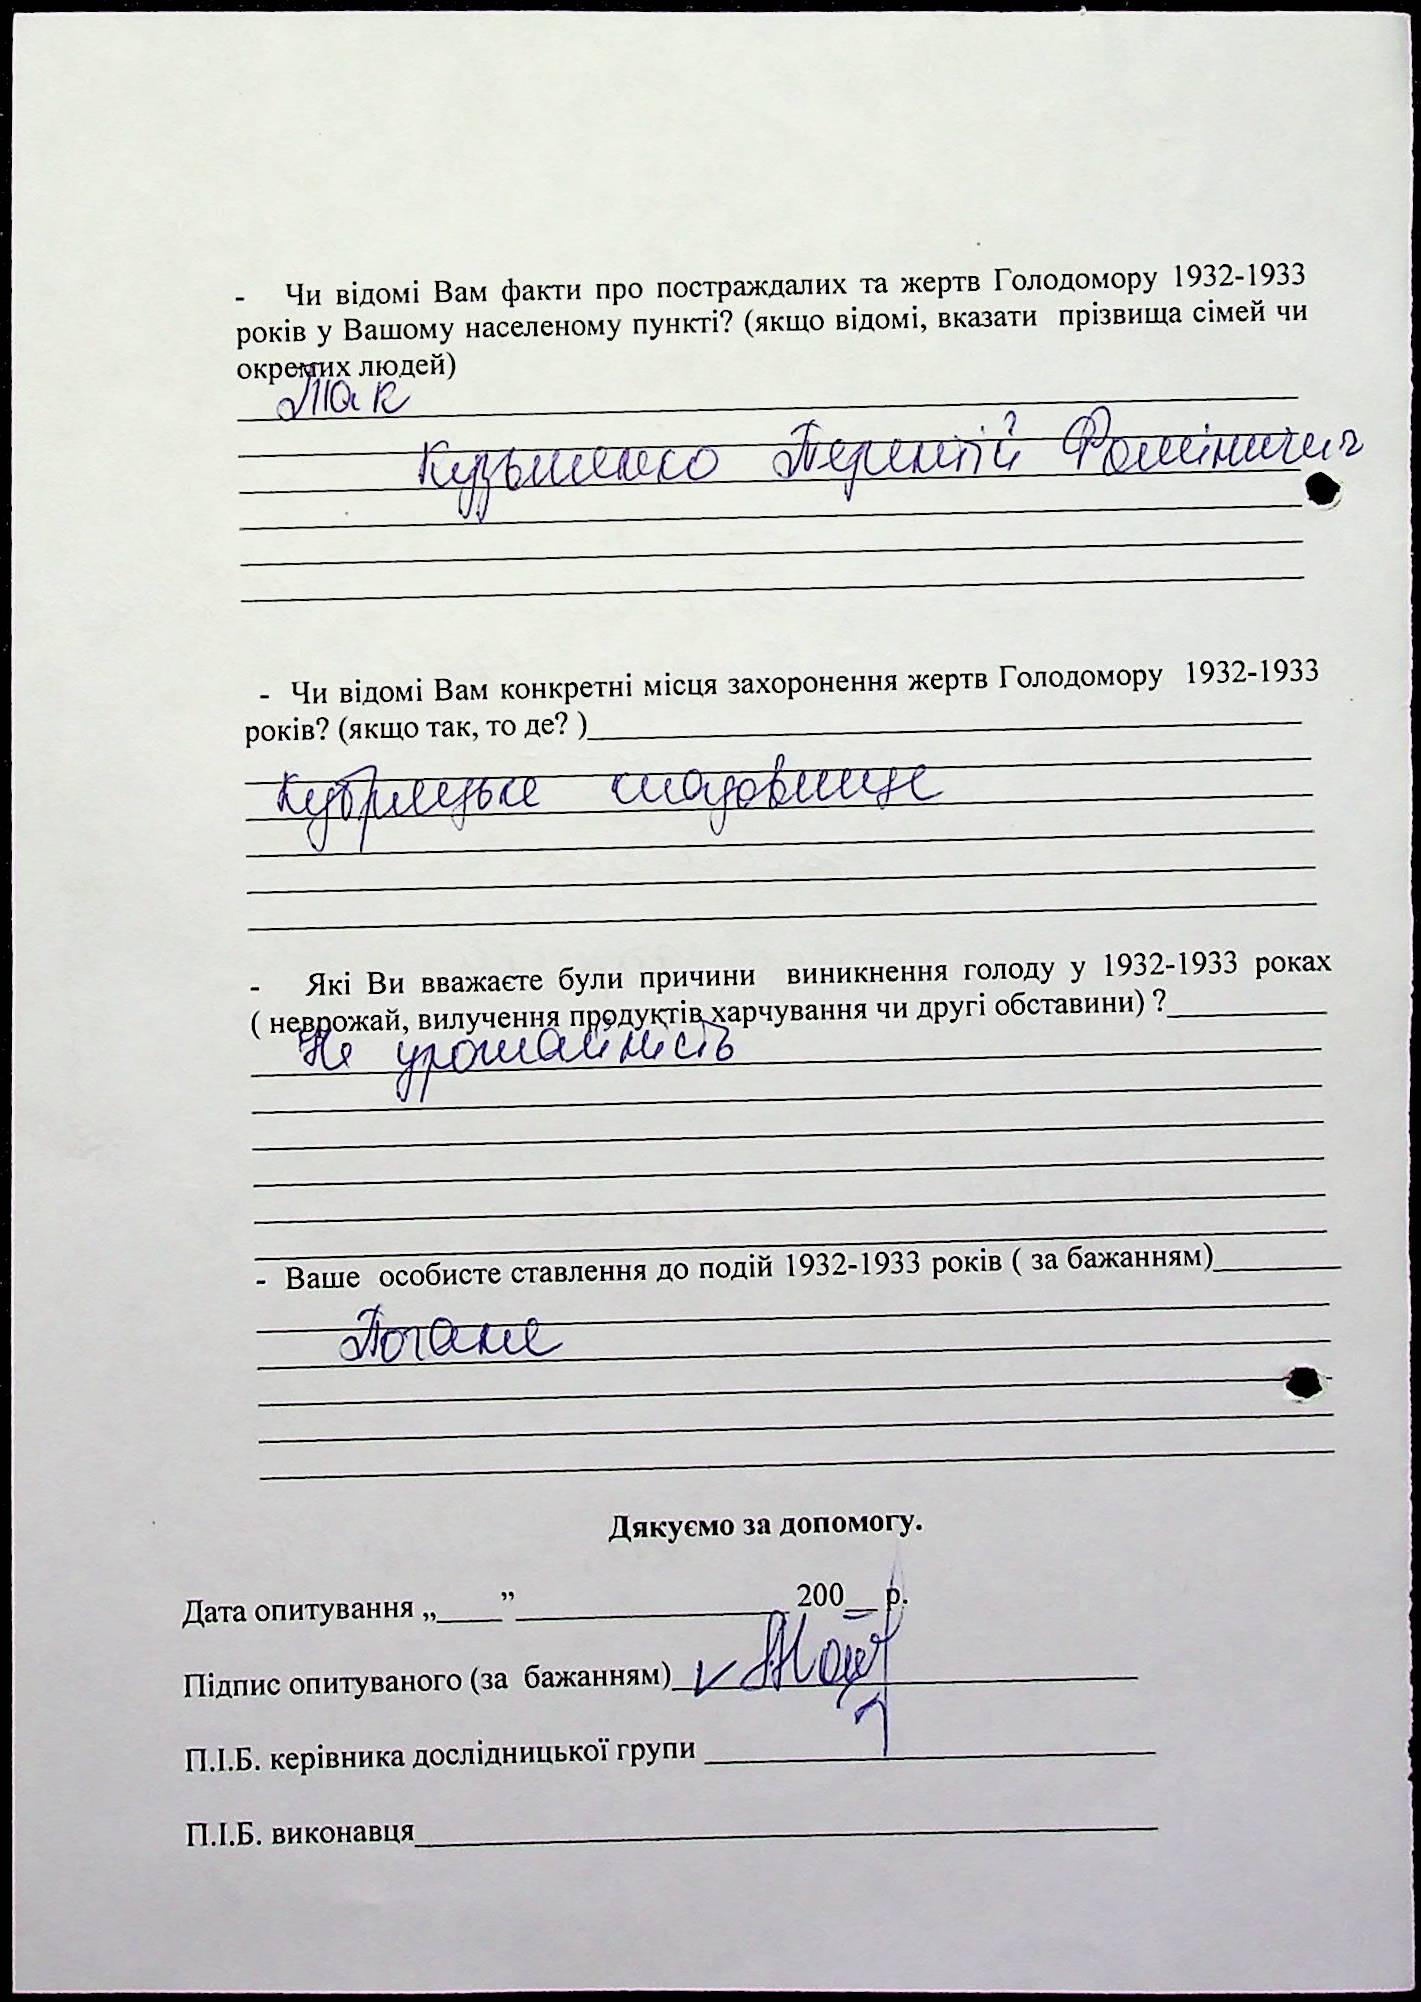 - Чи відомі Вам факти про постраждалих та жертв Голодомору 1932-1933
років у Вашому населеному пункті? (якщо відомі, вказати прізвища сімей чи
окремих людей)
Так
Кузьменко Терентій Фомінич
- Чи відомі Вам конкретні місця захоронення жертв Голодомору 1932-1933
років? (якщо так, то де? )
кладовище
- Які Ви вважаєте були причини виникнення голоду у 1932-1933 роках
( неврожай, вилучення продуктів харчування чи другі обставини) ?
Не урожайність
- Ваше особисте ставлення до подій 1932-1933 років ( за бажанням)
Погане
Дякуємо за допомогу.
Дата опитування „____” 200__ р.
Підпис опитуваного (за бажанням)
П.І.Б. керівника дослідницької групи
П.І.Б. виконавця